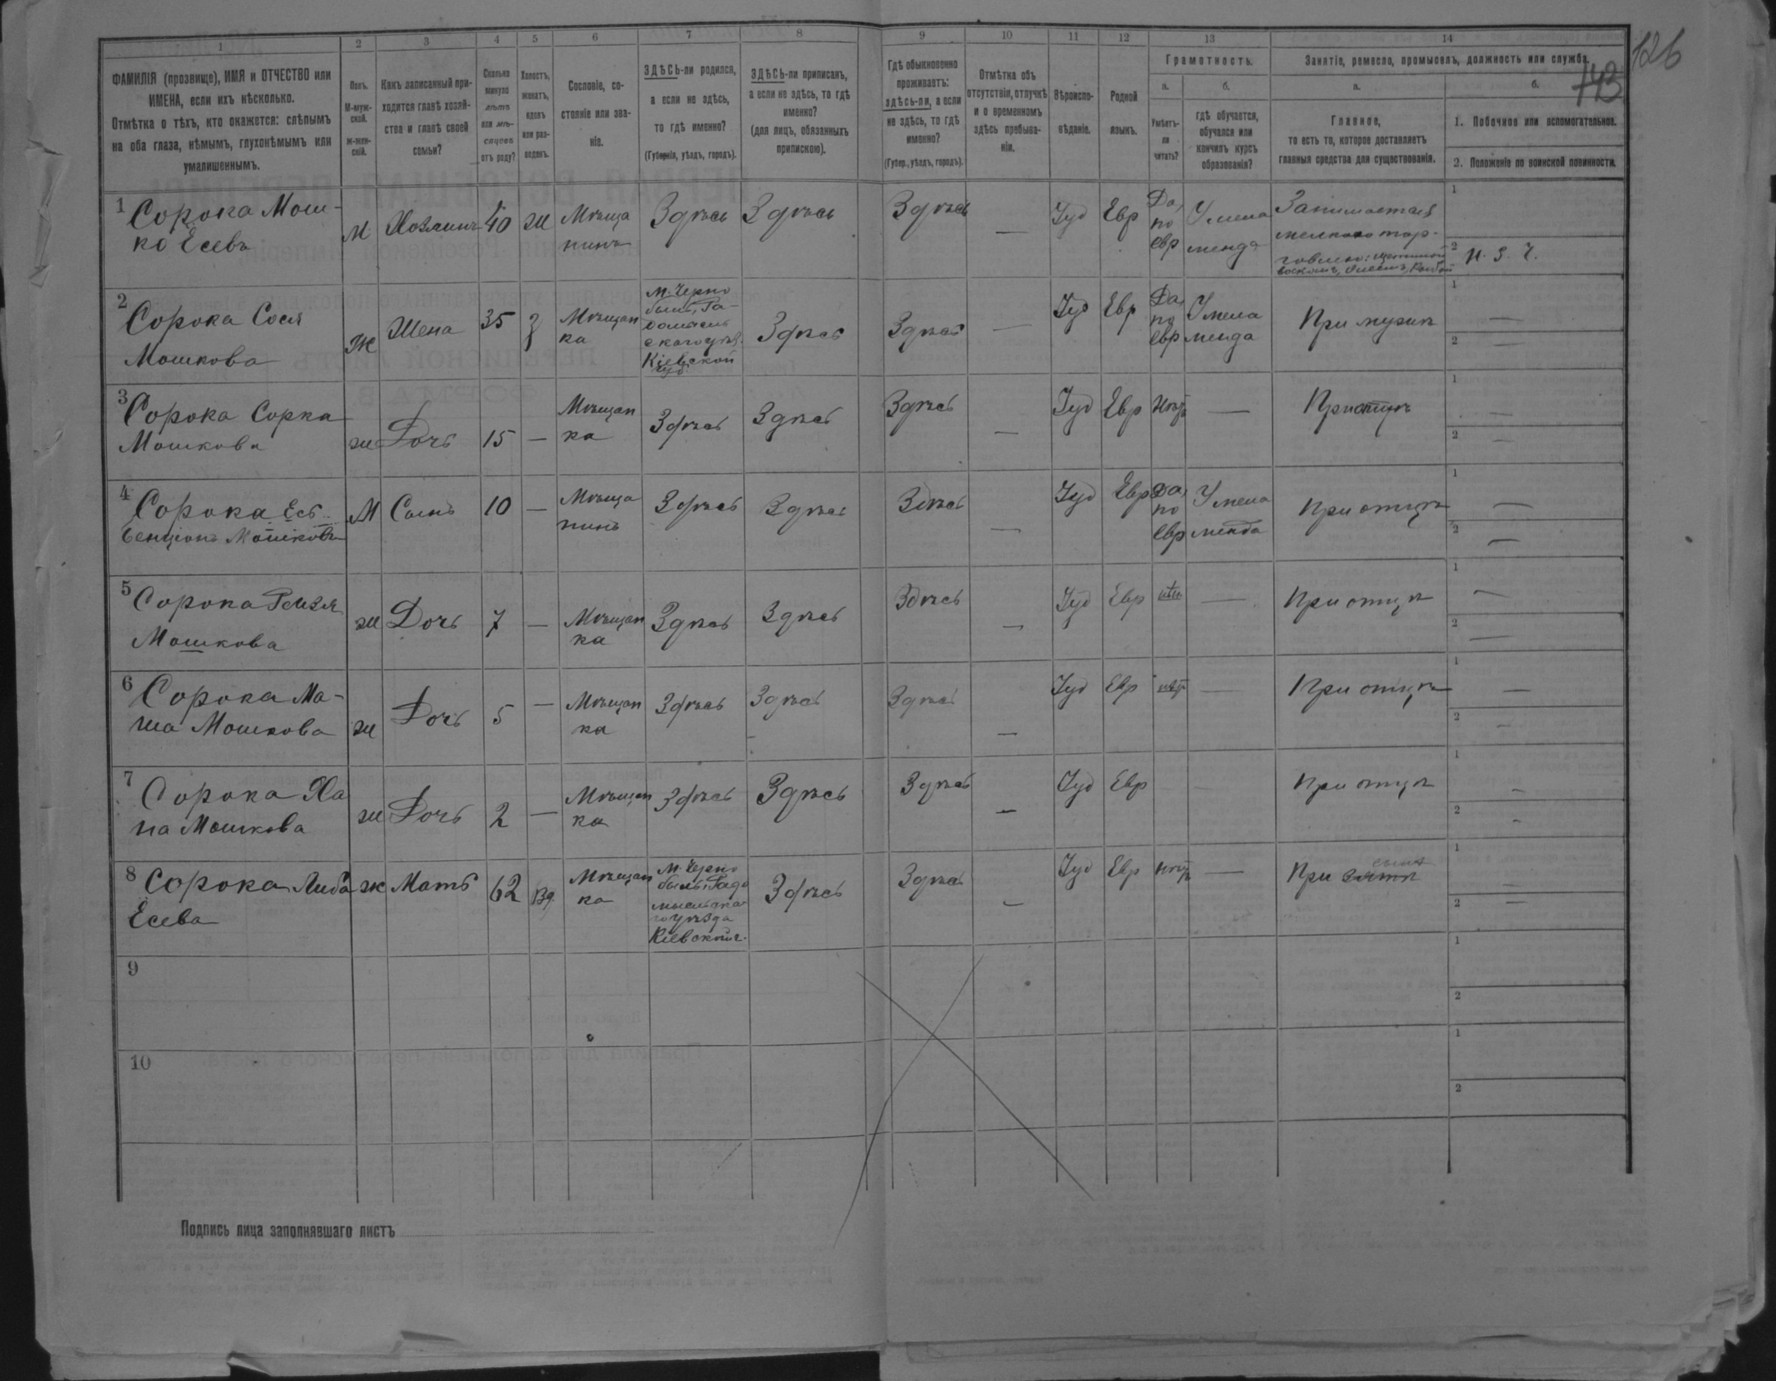 126
143
1 2 3 4 5 6 7 8 9 10 11 12 13 14
ФАМИЛІЯ (прозвище), ИМЯ и ОТЧЕСТВО или
ИМЕНА, если ихъ нѣсколько.
Отмѣтка о тѣхъ, кто окажется: слѣпымъ
на оба глаза, нѣмымъ, глухонѣмымъ или
умалишеннымъ.
Полъ.
М-муж-
ской.
Ж-жен-
скій.
Какъ записанный при-
ходится главѣ хозяй-
ства и главѣ своей
семьи?
Сколько
минуло
лѣтъ
или мѣ-
сяцевъ
отъ роду?
Холостъ,
женатъ,
вдовъ
или раз-
веденъ.
Сословіе, со-
стояніе или зва-
ніе.
ЗДѢСЬ-ли родился,
а если не здѣсь,
то гдѣ именно?
(Губернія, уѣздъ, городъ).
ЗДѢСЬ-ли приписанъ,
а если не здѣсь, то гдѣ
именно?
(для лицъ, обязанныхъ
припискою).
Гдѣ обыкновенно
проживаетъ:
здѣсь-ли, а если
не здѣсь, то гдѣ
именно?
(Губер., уѣздъ, городъ).
Отмѣтка объ
отсутствіи, отлучкѣ
и о временномъ
здѣсь пребыва-
ніи.
Вѣроиспо-
вѣданіе.
Родной
языкъ.
Грамотность.
а.
Умѣетъ-
ли
читать?
б.
гдѣ обучается,
обучался или
кончилъ курсъ
образованія?
Занятіе, ремесло, промыселъ, должность или служба.
а.
Главное,
то есть то, которое доставляетъ
главныя средства для существованія.
б.
1. Побочное или вспомогательное.
2. Положеніе по воинской повинности.
1 Сорока Мош-
ко Есевъ
М Хозяинъ 40 ж Мѣща
нинъ
Здѣсь Здѣсь Здѣсь — Іуд Евр
Да,
по
евр
У мела
меда
Занимается
мелкою тор-
говлею:
1
2 Н. З. Ч.
2 Сорока Сося
Мошкова
Ж Жена 35 З Мѣщан
ка
м. Черно
быль, Ра-
домысль
скаго уѣз.
Кіевской
губ.
Здѣсь Здѣсь — Іуд Евр
Да,
по
евр
У мела
меда
При мужѣ
1 —
2 —
3 Сорока Сорка
Мошкова
ж Дочь 15 — Мѣщан
ка
Здѣсь Здѣсь Здѣсь — Іуд Евр Нѣтъ — При отцѣ
1 —
2 —
4 Сорока Есь-
Бенціонъ Мошковъ
М Сынъ 10 — Мѣща
нинъ
Здѣсь Здѣсь Здѣсь — Іуд Евр
Да,
по
евр
У мела
меда
При отцѣ
1 —
2 —
5 Сорока Рейзя
Мошкова
ж Дочь 7 — Мѣщан
ка
Здѣсь Здѣсь Здѣсь — Іуд Евр нѣтъ — При отцѣ
1 —
2 —
6 Сорока Ма-
ша Мошкова
ж Дочь 5 — Мѣщан
ка
Здѣсь Здѣсь Здѣсь — Іуд Евр нѣтъ — При отцѣ
1 —
2 —
7 Сорока Ха
на Мошкова
ж Дочь 2 — Мѣщан
ка
Здѣсь Здѣсь Здѣсь — Іуд Евр При отцѣ
1 —
2 -
8 Сорока Либа
Есева
ж Мать 62 Вд Мѣщан
ка
м. Черно
быль, Радо
мысльска
го уѣзда
Кіевской г.
Здѣсь Здѣсь — Іуд Евр Нѣтъ — При сынѣ
1 —
2 —
9
1
2
10
1
2
Подпись лица заполнявшаго листъ